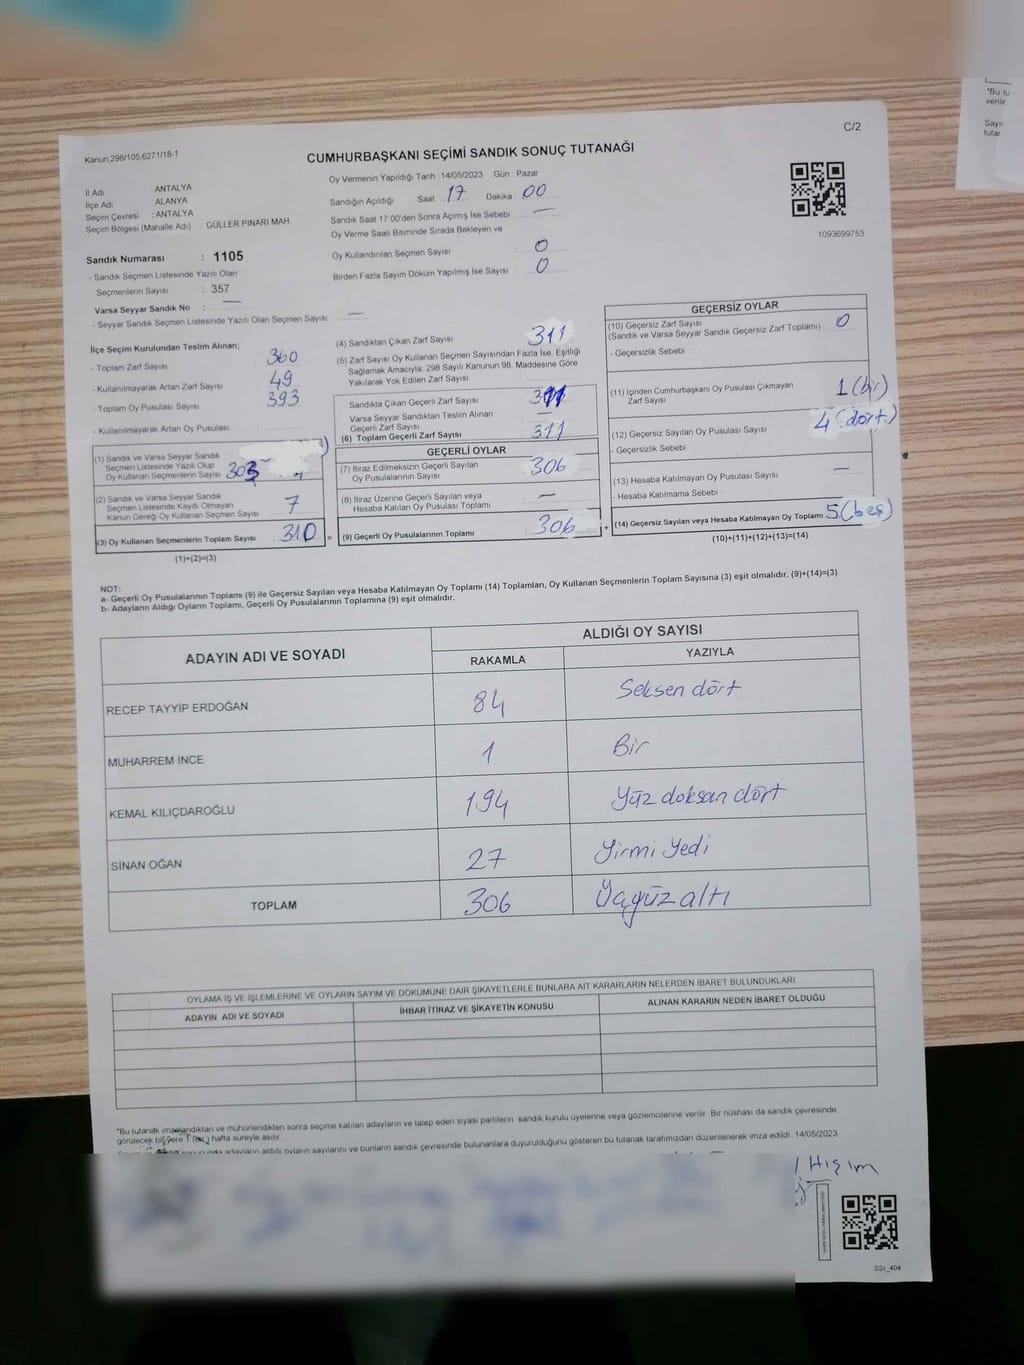 *Bu tu
verilir
Sayın
tutar
C/2
Kanun,298/105.6271/18-1
CUMHURBAŞKANI SEÇİMİ SANDIK SONUÇ TUTANAĞI
İl Adı ANTALYA
İlçe Adı ALANYA
Seçim Çevresi : ANTALYA
Seçim Bölgesi (Mahalle Adı) : GÜLLER PINARI MAH.
Oy Vermenin Yapıldığı Tarih :14/05/2023 Gün : Pazar
Sandığın Açıldığı Saat 17 Dakika 00
Sandık Saat 17:00'den Sonra Açımış İse Sebebi —
Oy Verme Saati Bitiminde Sırada Bekleyen ve
Oy Kullandırılan Seçmen Sayısı 0
Birden Fazla Sayım Döküm Yapılmış İse Sayısı 0
1093699753
Sandık Numarası : 1105
- Sandık Seçmen Listesinde Yazılı Olan
Seçmenlerin Sayısı : 357
Varsa Seyyar Sandık No : —
- Seyyar Sandık Seçmen Listesinde Yazılı Olan Seçmen Sayısı : —
İlçe Seçim Kurulundan Teslim Alınan;
- Toplam Zarf Sayısı 360
- Kullanılmayarak Artan Zarf Sayısı 49
- Toplam Oy Pusulası Sayısı 393
- Kullanılmayarak Artan Oy Pusulası
(1) Sandık ve Varsa Seyyar Sandık
Seçmen Listesinde Yazılı Olup
Oy Kullanan Seçmenlerin Sayısı 303
(2) Sandık ve Varsa Seyyar Sandık
Seçmen Listesinde Kayıtlı Olmayan
Kanun Gereği Oy Kullanan Seçmen Sayısı 7
(3) Oy Kullanan Seçmenlerin Toplam Sayısı 310 =
(1)+(2)=(3)
(4) Sandıktan Çıkan Zarf Sayısı 311
(5) Zarf Sayısı Oy Kullanan Seçmen Sayısından Fazla İse, Eşitliği
Sağlamak Amacıyla; 298 Sayılı Kanunun 98. Maddesine Göre
Yakılarak Yok Edilen Zarf Sayısı
Sandıkta Çıkan Geçerli Zarf Sayısı 311
Varsa Seyyar Sandıktan Teslim Alınan
Geçerli Zarf Sayısı —
(6) Toplam Geçerli Zarf Sayısı 311
GEÇERLİ OYLAR
(7) İtiraz Edilmeksizin Geçerli Sayılan
Oy Pusulasının Sayısı 306
(8) İtiraz Üzerine Geçerli Sayılan veya
Hesaba Katılan Oy Pusulası Toplamı —
(9) Geçerli Oy Pusulalarının Toplamı 306 +
GEÇERSİZ OYLAR
(10) Geçersiz Zarf Sayısı
(Sandık ve Varsa Seyyar Sandık Geçersiz Zarf Toplamı) 0
- Geçersizlik Sebebi
(11) İçinden Cumhurbaşkanı Oy Pusulası Çıkmayan
Zarf Sayısı 1 (bir)
(12) Geçersiz Sayılan Oy Pusulası Sayısı 4 (dört)
- Geçersizlik Sebebi
(13) Hesaba Katılmayan Oy Pusulası Sayısı —
- Hesaba Katılmama Sebebi
(14) Geçersiz Sayılan veya Hesaba Katılmayan Oy Toplamı 5 (beş)
(10)+(11)+(12)+(13)=(14)
NOT:
a- Geçerli Oy Pusulalarının Toplamı (9) ile Geçersiz Sayılan veya Hesaba Katılmayan Oy Toplamı (14) Toplamları, Oy Kullanan Seçmenlerin Toplam Sayısına (3) eşit olmalıdır. (9)+(14)=(3)
b- Adayların Aldığı Oyların Toplamı, Geçerli Oy Pusulalarının Toplamına (9) eşit olmalıdır.
ADAYIN ADI VE SOYADI ALDIĞI OY SAYISI
RAKAMLA YAZIYLA
RECEP TAYYİP ERDOĞAN 84 Seksen dört
MUHARREM İNCE 1 Bir
KEMAL KILIÇDAROĞLU 194 Yüz doksan dört
SİNAN OĞAN 27 Yirmi Yedi
TOPLAM 306 Üçyüz altı
OYLAMA İŞ VE İŞLEMLERİNE VE OYLARIN SAYIM VE DÖKÜMÜNE DAİR ŞİKAYETLERLE BUNLARA AİT KARARLARIN NELERDEN İBARET BULUNDUKLARI
ADAYIN ADI VE SOYADI İHBAR İTİRAZ VE ŞİKAYETİN KONUSU ALINAN KARARIN NEDEN İBARET OLDUĞU
*Bu tutanak imzalandıktan ve mühürlendikten sonra seçime katılan adayların ve talep eden siyasi partilerin sandık kurulu üyelerine veya gözlemcilerine verilir. Bir nüshası da sandık çevresinde
görülecek bir yere 1 hafta süreyle asılır.
sonucunda adayların aldığı oyların sayılarını ve bunların sandık çevresinde bulunanlara duyurulduğunu gösteren bu tutanak tarafımızdan düzenlenerek imza edildi. 14/05/2023
SSI_404